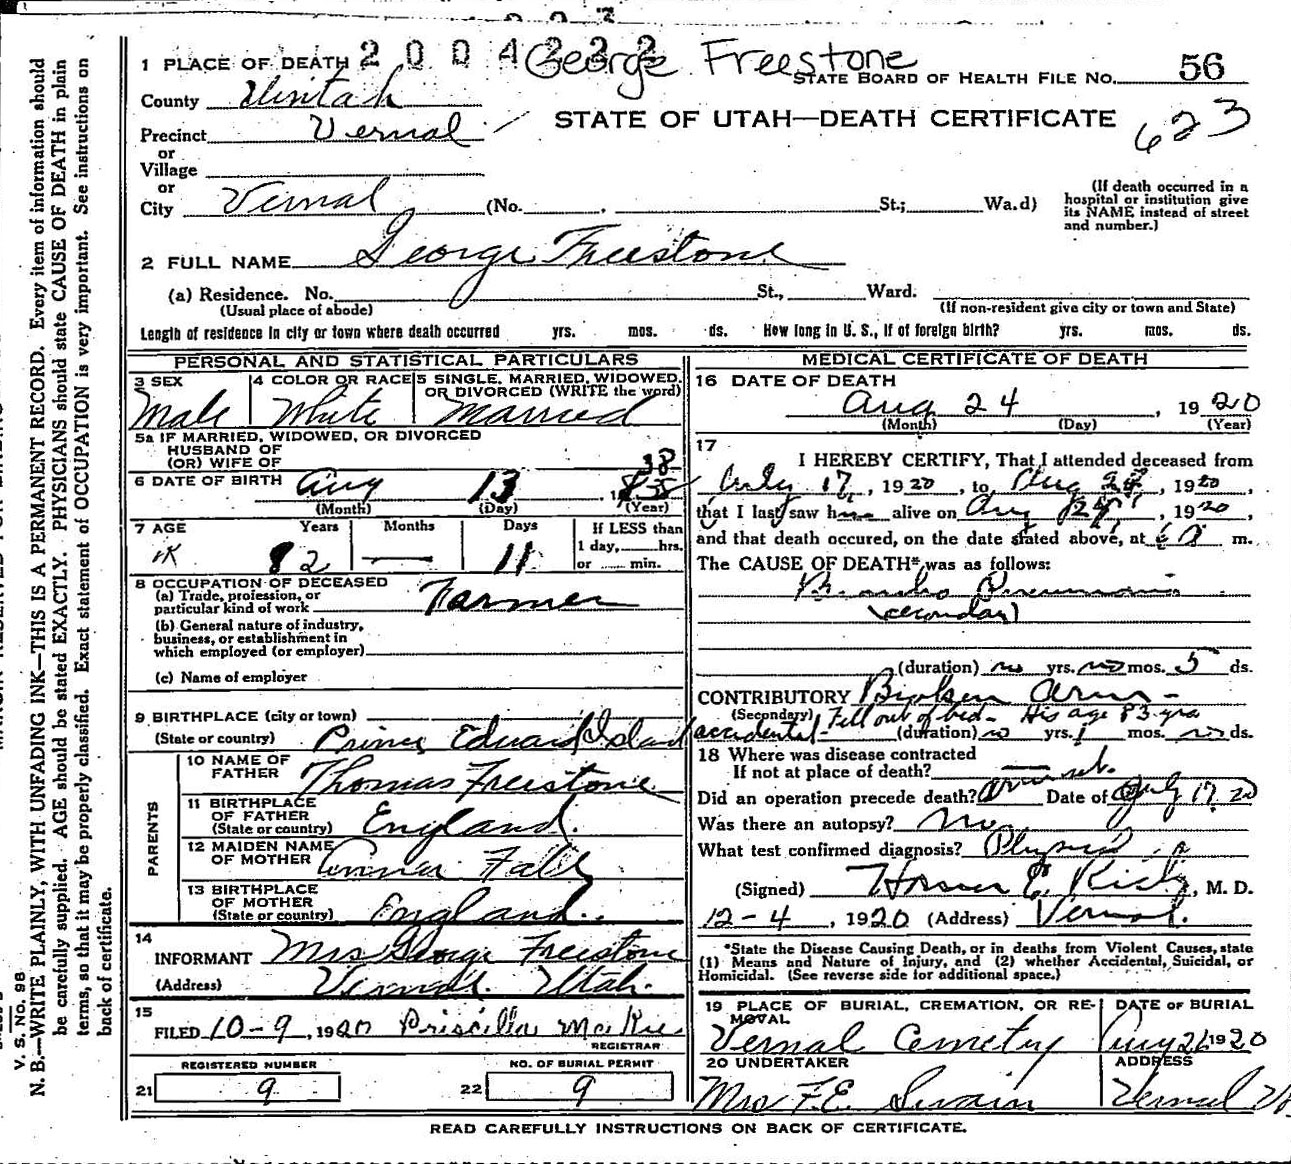 2004222 George Freestone
1 PLACE OF DEATH
STATE BOARD OF HEALTH FILE NO. 56
County Uintah
STATE OF UTAH—DEATH CERTIFICATE 623
Precinct Vernal
or
Village
or
City Vernal (No. , St.; Wa.d)
(If death occurred in a
hospital or institution give
its NAME instead of street
and number.)
2 FULL NAME George Freestone
(a) Residence. No. St., Ward.
(Usual place of abode) (If non-resident give city or town and State)
Length of residence in city or town where death occurred yrs. mos. ds. How long in U. S., if of foreign birth? yrs. mos. ds.
PERSONAL AND STATISTICAL PARTICULARS
3 SEX
Male
4 COLOR OR RACE
White
5 SINGLE, MARRIED, WIDOWED,
OR DIVORCED (WRITE the word)
Married
5a IF MARRIED, WIDOWED, OR DIVORCED
HUSBAND OF
(OR) WIFE OF
6 DATE OF BIRTH Aug 13 38
(Month) (Day) (Year)
7 AGE Years Months Days
82 — 11
If LESS than
1 day, hrs.
or min.
8 OCCUPATION OF DECEASED
(a) Trade, profession, or
particular kind of work Farmer
(b) General nature of industry,
business, or establishment in
which employed (or employer)
(c) Name of employer
9 BIRTHPLACE (city or town)
(State or country) Prince Edward Island
PARENTS
10 NAME OF
FATHER Thomas Freestone
11 BIRTHPLACE
OF FATHER
(State or country) England.
12 MAIDEN NAME
OF MOTHER Fall
13 BIRTHPLACE
OF MOTHER
(State or country) England.
14
INFORMANT Mrs George Freestone
(Address) Vernal. Utah.
15
FILED 10-9, 1920 Priscilla McKee
REGISTRAR
REGISTERED NUMBER
21 9
NO. OF BURIAL PERMIT
22 9
MEDICAL CERTIFICATE OF DEATH
16 DATE OF DEATH
Aug 24, 1920
(Month) (Day) (Year)
17
I HEREBY CERTIFY, That I attended deceased from
July 17, 1920, to Aug 24, 1920,
that I last saw him alive on Aug 24, 1920,
and that death occured, on the date stated above, at m.
The CAUSE OF DEATH* was as follows:
Broncho Pneumonia
(secondary)
(duration) no yrs. no mos. 5 ds.
CONTRIBUTORY Broken arm -
(Secondary) Fell out of bed - His age 83 yrs
accidental - (duration) no yrs. 1 mos. no ds.
18 Where was disease contracted
If not at place of death?
Did an operation precede death? Arm set. Date of July 17, 20
Was there an autopsy? No
What test confirmed diagnosis? Physical
(Signed) Homer E. Rich, M. D.
12-4, 1920 (Address) Vernal.
*State the Disease Causing Death, or in deaths from Violent Causes, state
(1) Means and Nature of Injury, and (2) whether Accidental, Suicidal, or
Homicidal. (See reverse side for additional space.)
19 PLACE OF BURIAL, CREMATION, OR RE-
MOVAL
Vernal Cemetry
DATE OF BURIAL
Aug 26 1920
20 UNDERTAKER
Mrs F.E. Swain
ADDRESS
Vernal
READ CAREFULLY INSTRUCTIONS ON BACK OF CERTIFICATE.
V. S. No. 98
N. B.—WRITE PLAINLY, WITH UNFADING INK—THIS IS A PERMANENT RECORD. Every item of information should
be carefully supplied. AGE should be stated EXACTLY. PHYSICIANS should state CAUSE OF DEATH in plain
terms, so that it may be properly classified. Exact statement of OCCUPATION is very important. See instructions on
back of certificate.